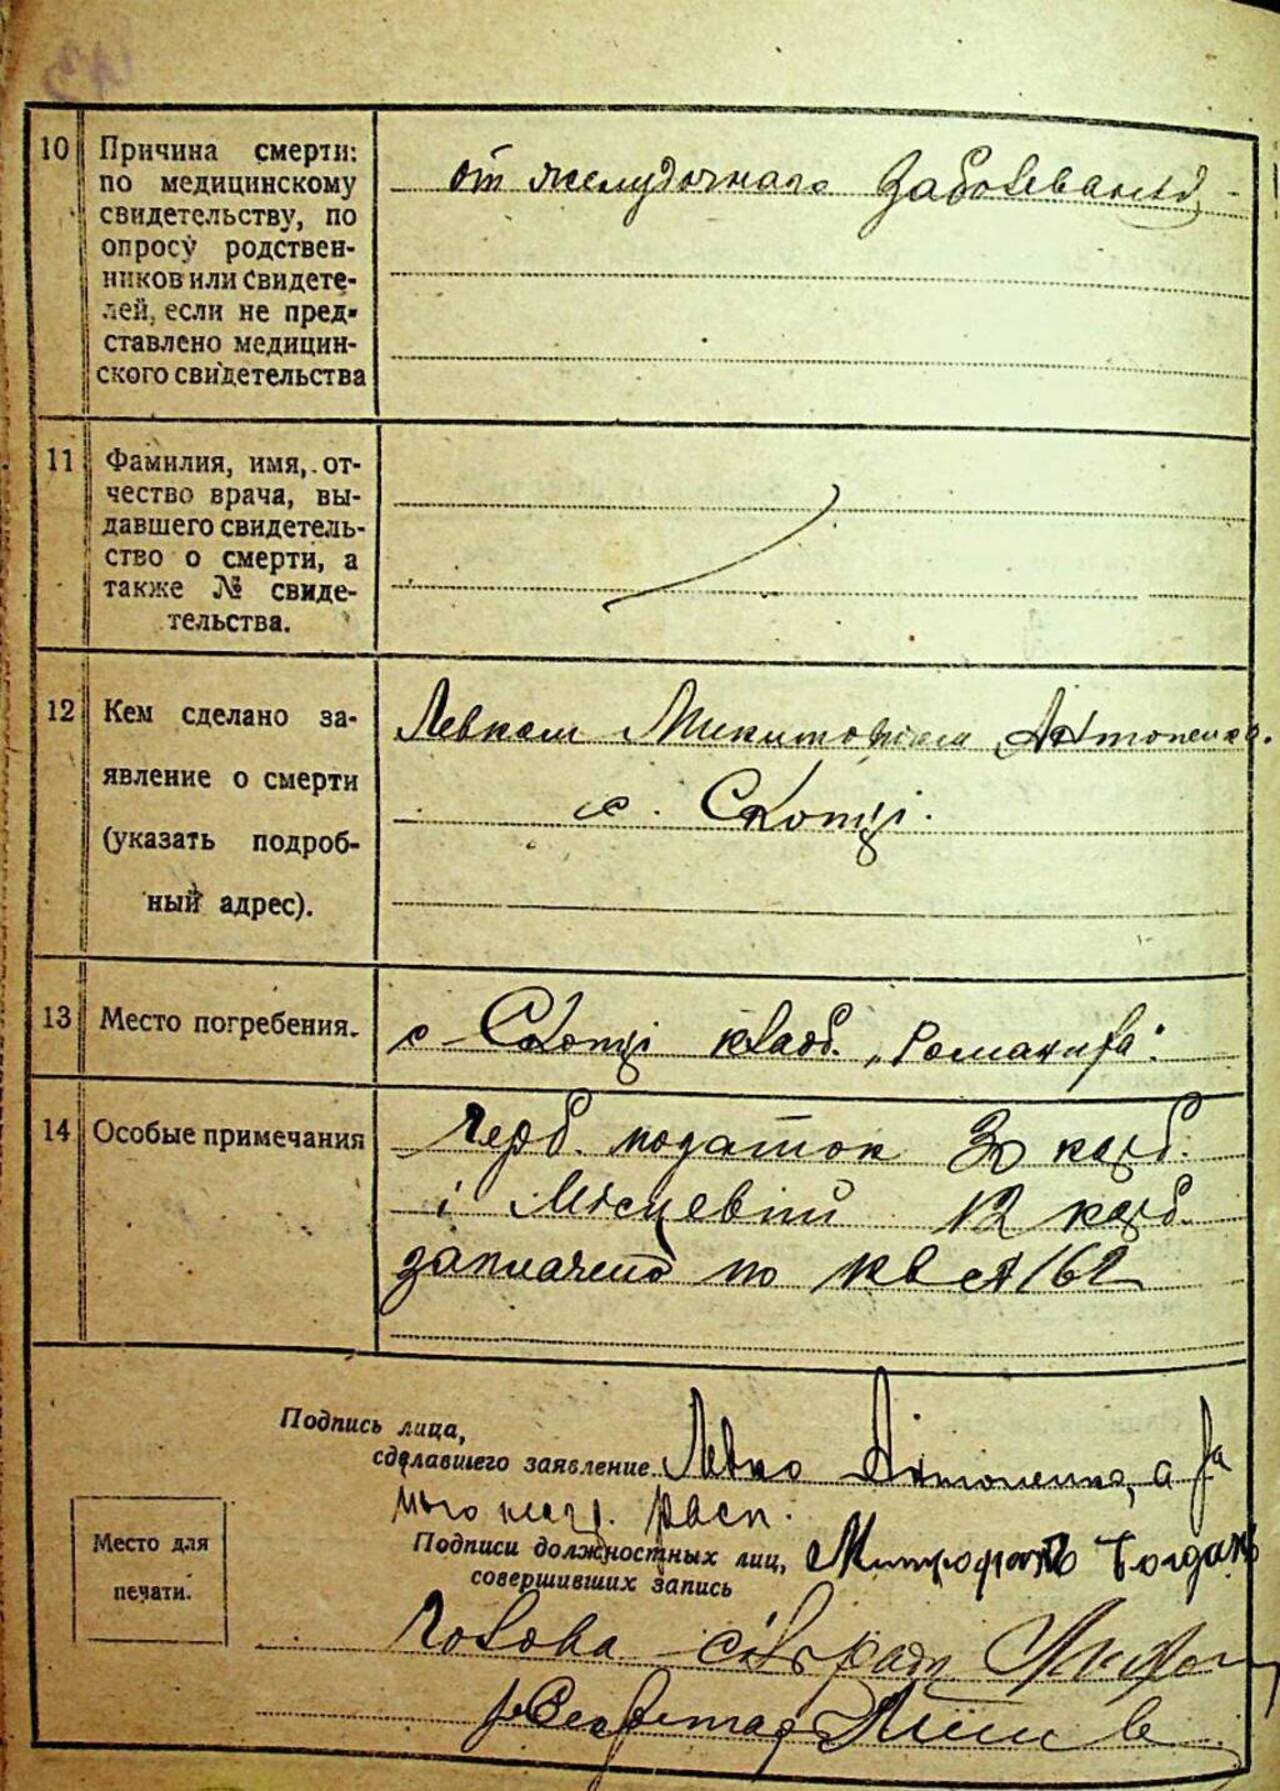 10 Причина смерти:
по медицинскому
свидетельству, по
опросу родствен-
ников или свидете-
лей, если не пред-
ставлено медицин-
ского свидетельства
от желудочнаго заболевания
11 Фамилия, имя, от-
чество врача, вы-
давшего свидетель-
ство о смерти, а
также № свиде-
тельства.
12 Кем сделано за-
явление о смерти
(указать подроб-
ный адрес).
Левком Микитовичем Антоненко.
с. Скопці.
13 Место погребения.
с Скопці кладб.
14 Особые примечания
Герб. податок 30 карб.
і Місцевий 12 карб.
заплачено по кв № 162
Подпись лица,
сделавшего заявление Левко Антоненко, а за
нього расп.
Подписи должностных лиц, Митрофанъ Богданъ
совершивших запись
Место для
печати.
Голова сільради
Секретар